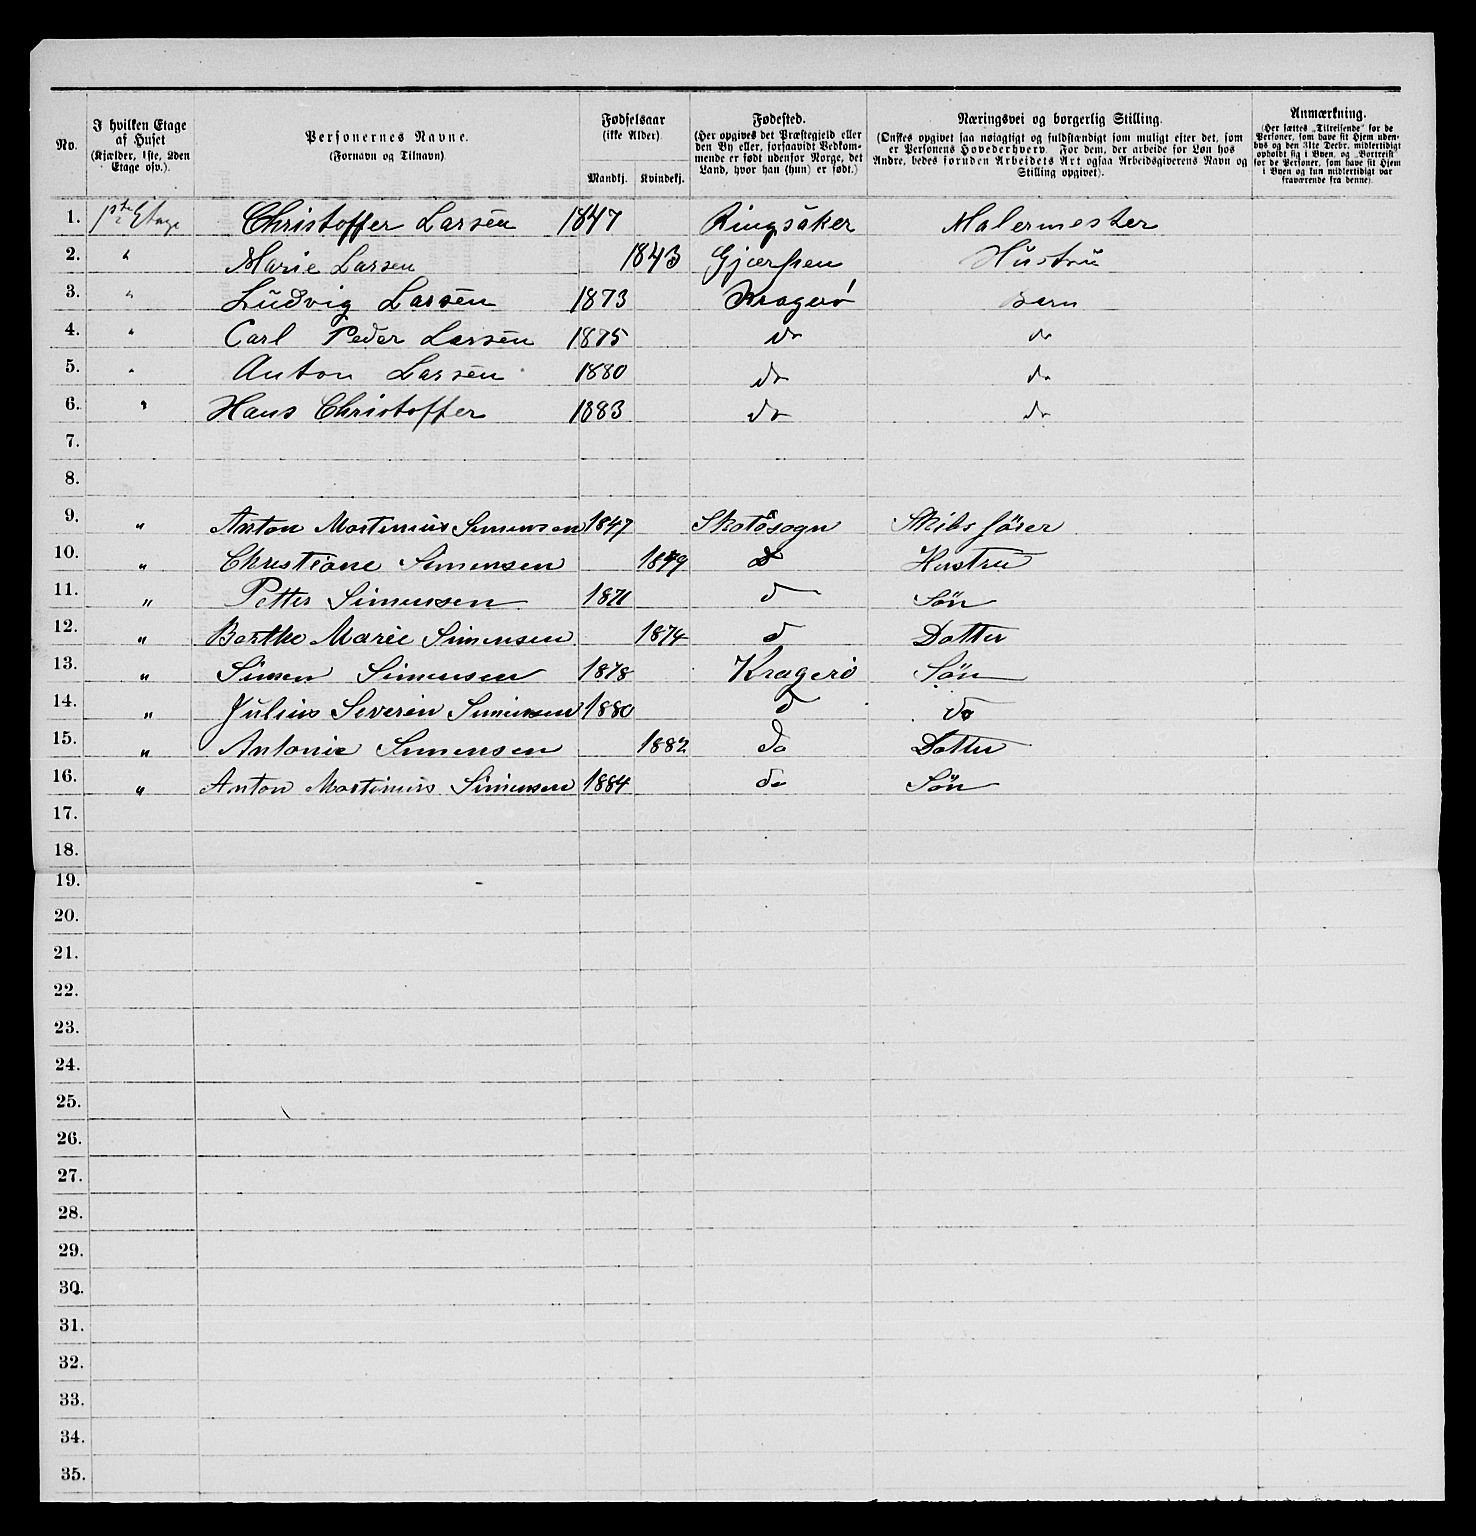 No.
I hvilken Etage af Huset (Kjælder, 1ste, 2den Etage osv.).
Personernes Navne.
(Fornavn og Tilnavn).
Fødselsaar
(ikke Alder).
Mandkj. Kvindekj.
Fødested.
(Her opgives det Præstegjeld eller
den By eller, forsaavidt Vedkom-
mende er født udenfor Norge, det
Land, hvor han (hun) er født.)
Næringsvei og borgerlig Stilling.
(Ønskes opgivet saa nøiagtigt og fuldstændigt som muligt efter det, som
er Personens Hovederhverv. For dem, der arbeide for Løn hos
Andre, bedes foruden Arbeidets Art ogsaa Arbeidsgiverens Navn og
Stilling opgivet).
Anmærkning.
(Her sættes „Tilreisende" for de
Personer, som have sit Hjem uden-
bys og den 31te Decbr. midlertidigt
opholdt sig i Byen, og „Bortreist"
for de Personer, som have sit Hjem
i Byen og kun midlertidigt var
fraværende fra denne).
1. 1ste Etage Christoffer Larsen 1847 Ringsaker Malermester
2. " Marie Larsen 1843 Hustru
3. " Ludvig Larsen 1873 Kragerø Barn
4. " Carl Peder Larsen 1875 do do
5. " Anton Larsen 1880 do do
6. " Hans Christoffer 1883 do do
7.
8.
9. " Anton Martinius Simensen 1847 Skatøsogn Skibsfører
10. " Christiane Simensen 1849 d Hustru
11. " Petter Simensen 1871 d Søn
12. " Berthe Marie Simensen 1874 d Datter
13. " Simen Simensen 1878 Kragerø Søn
14. " Julius Severin Simensen 1880 d do
15. " Antonie Simensen 1882 do Datter
16. " Anton Martinius Simensen 1884 do Søn
17.
18.
19.
20.
21.
22.
23.
24.
25.
26.
27.
28.
29.
30.
31.
32.
33.
34.
35.